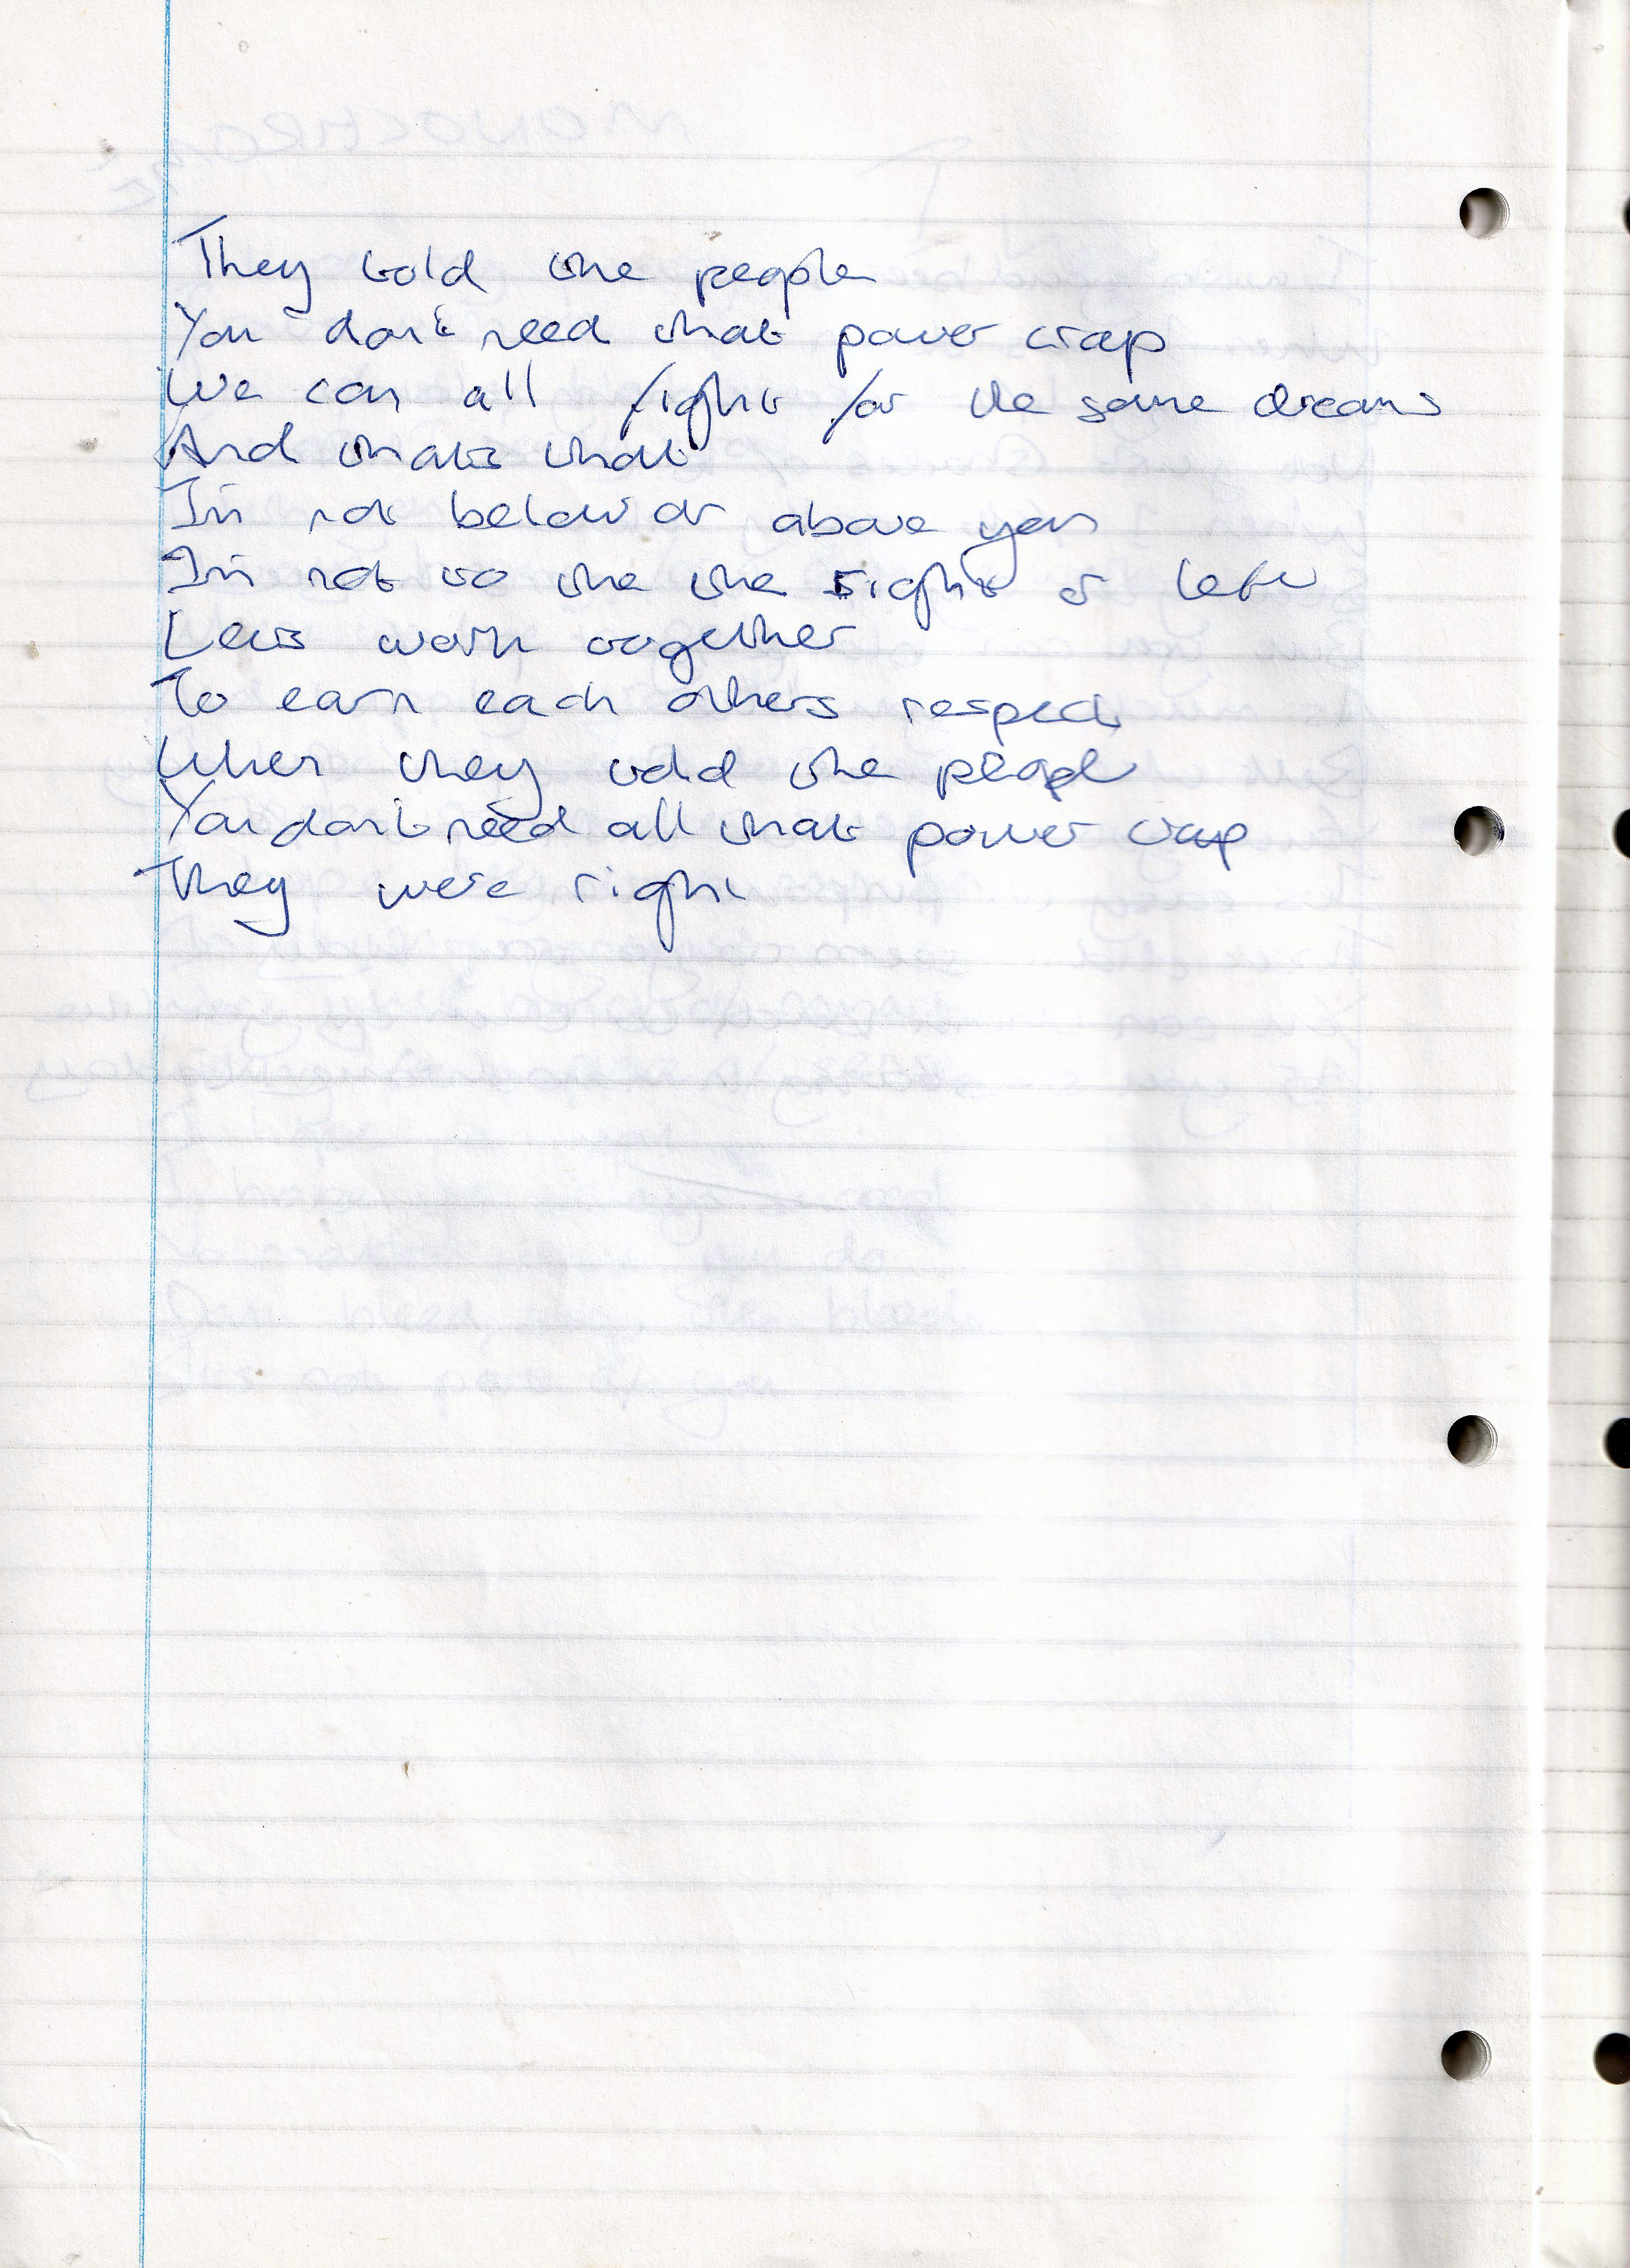 They told the people
You don't need that power crap
We can all fight for the same dreams
And thats that
I'm not below or above you
I'm not to the the right or left
Lets work together
To earn each others respect
When they told the people
You don't need all that power crap
They were right